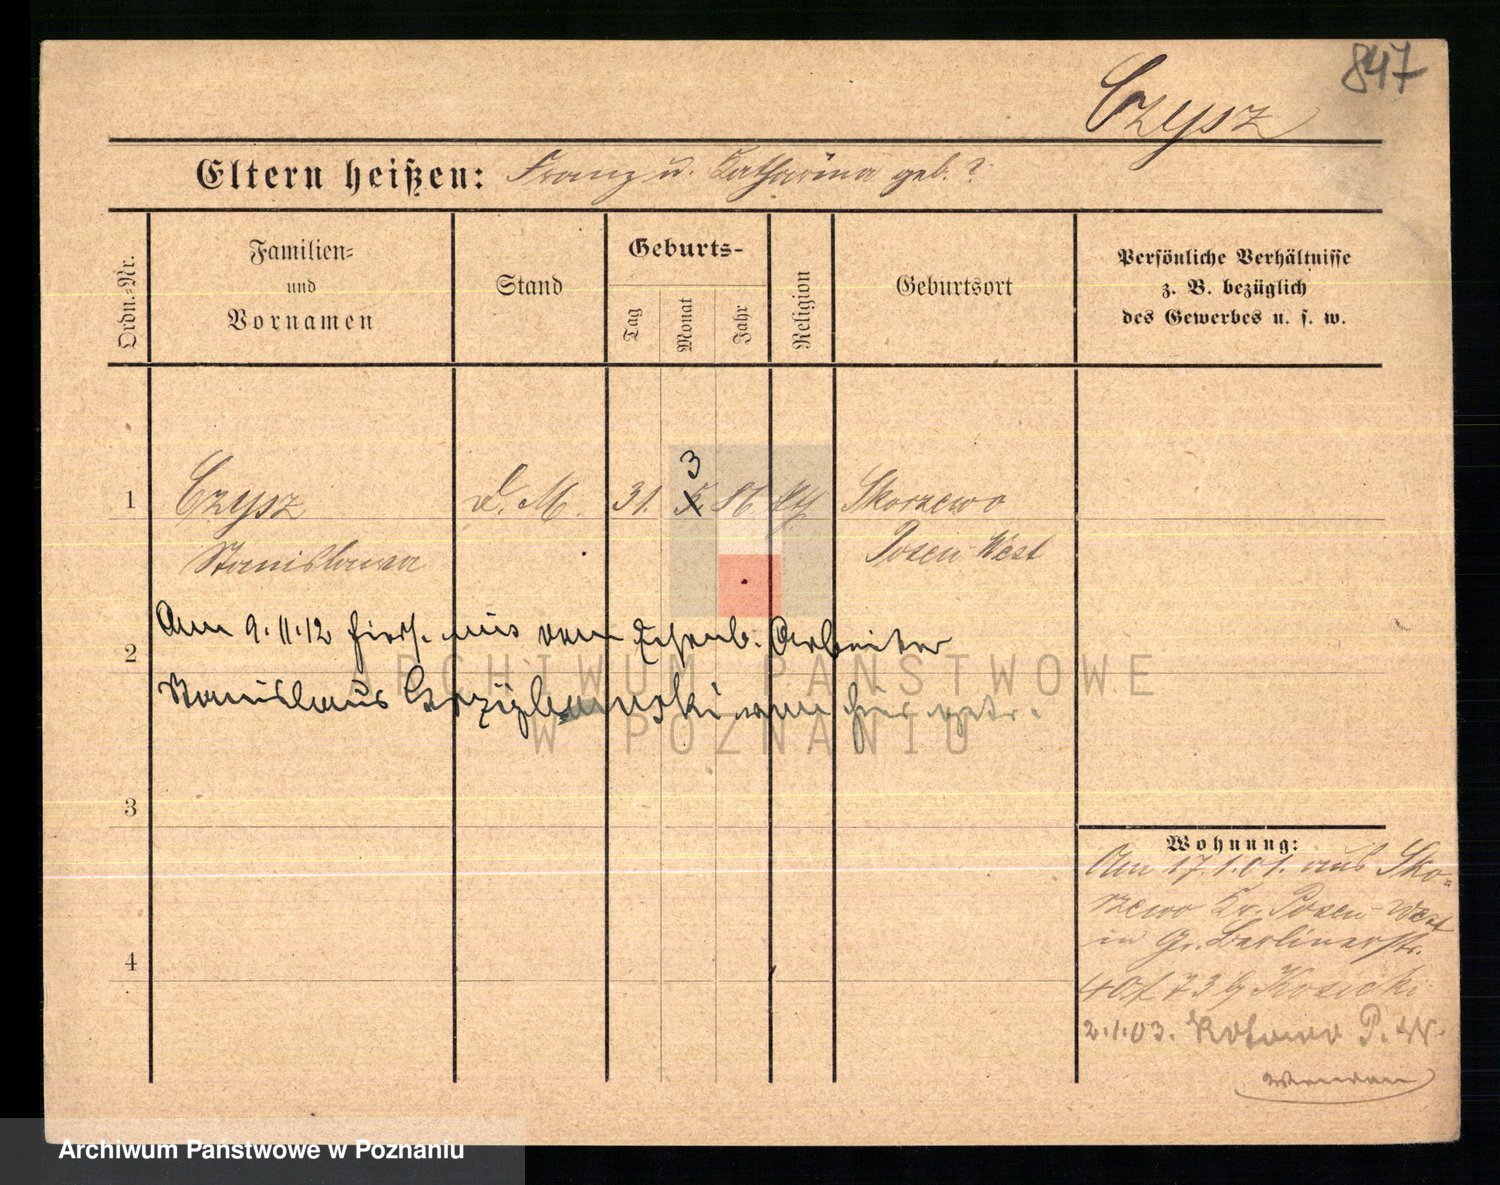 847
Czysz
Eltern heißen: Franz u. Katharina geb. ?
Ordn.=Nr.
Familien=
und
Vornamen
Stand
Geburts-
Tag
Monat
Jahr
Religion
Geburtsort
Persönliche Verhältnisse
z. B. bezüglich
des Gewerbes u. s. w.
3
1 Czysz D. M. 31. 5. 86. kth Skorzewo
Stanislawa Posen West
Am 9.11.12 hier mit dem Arbeiter
2
Stanislaus
ARCHIWUM PAŃSTWOWE
W POZNANIU
3
Wohnung:
Am 17.1.01. aus Sko=
rzewo Kr. Posen-West
in Gr. Berlinerstr.
4
40/73 b/ Kosicki
2.1.03. P. W.
Archiwum Państwowe w Poznaniu